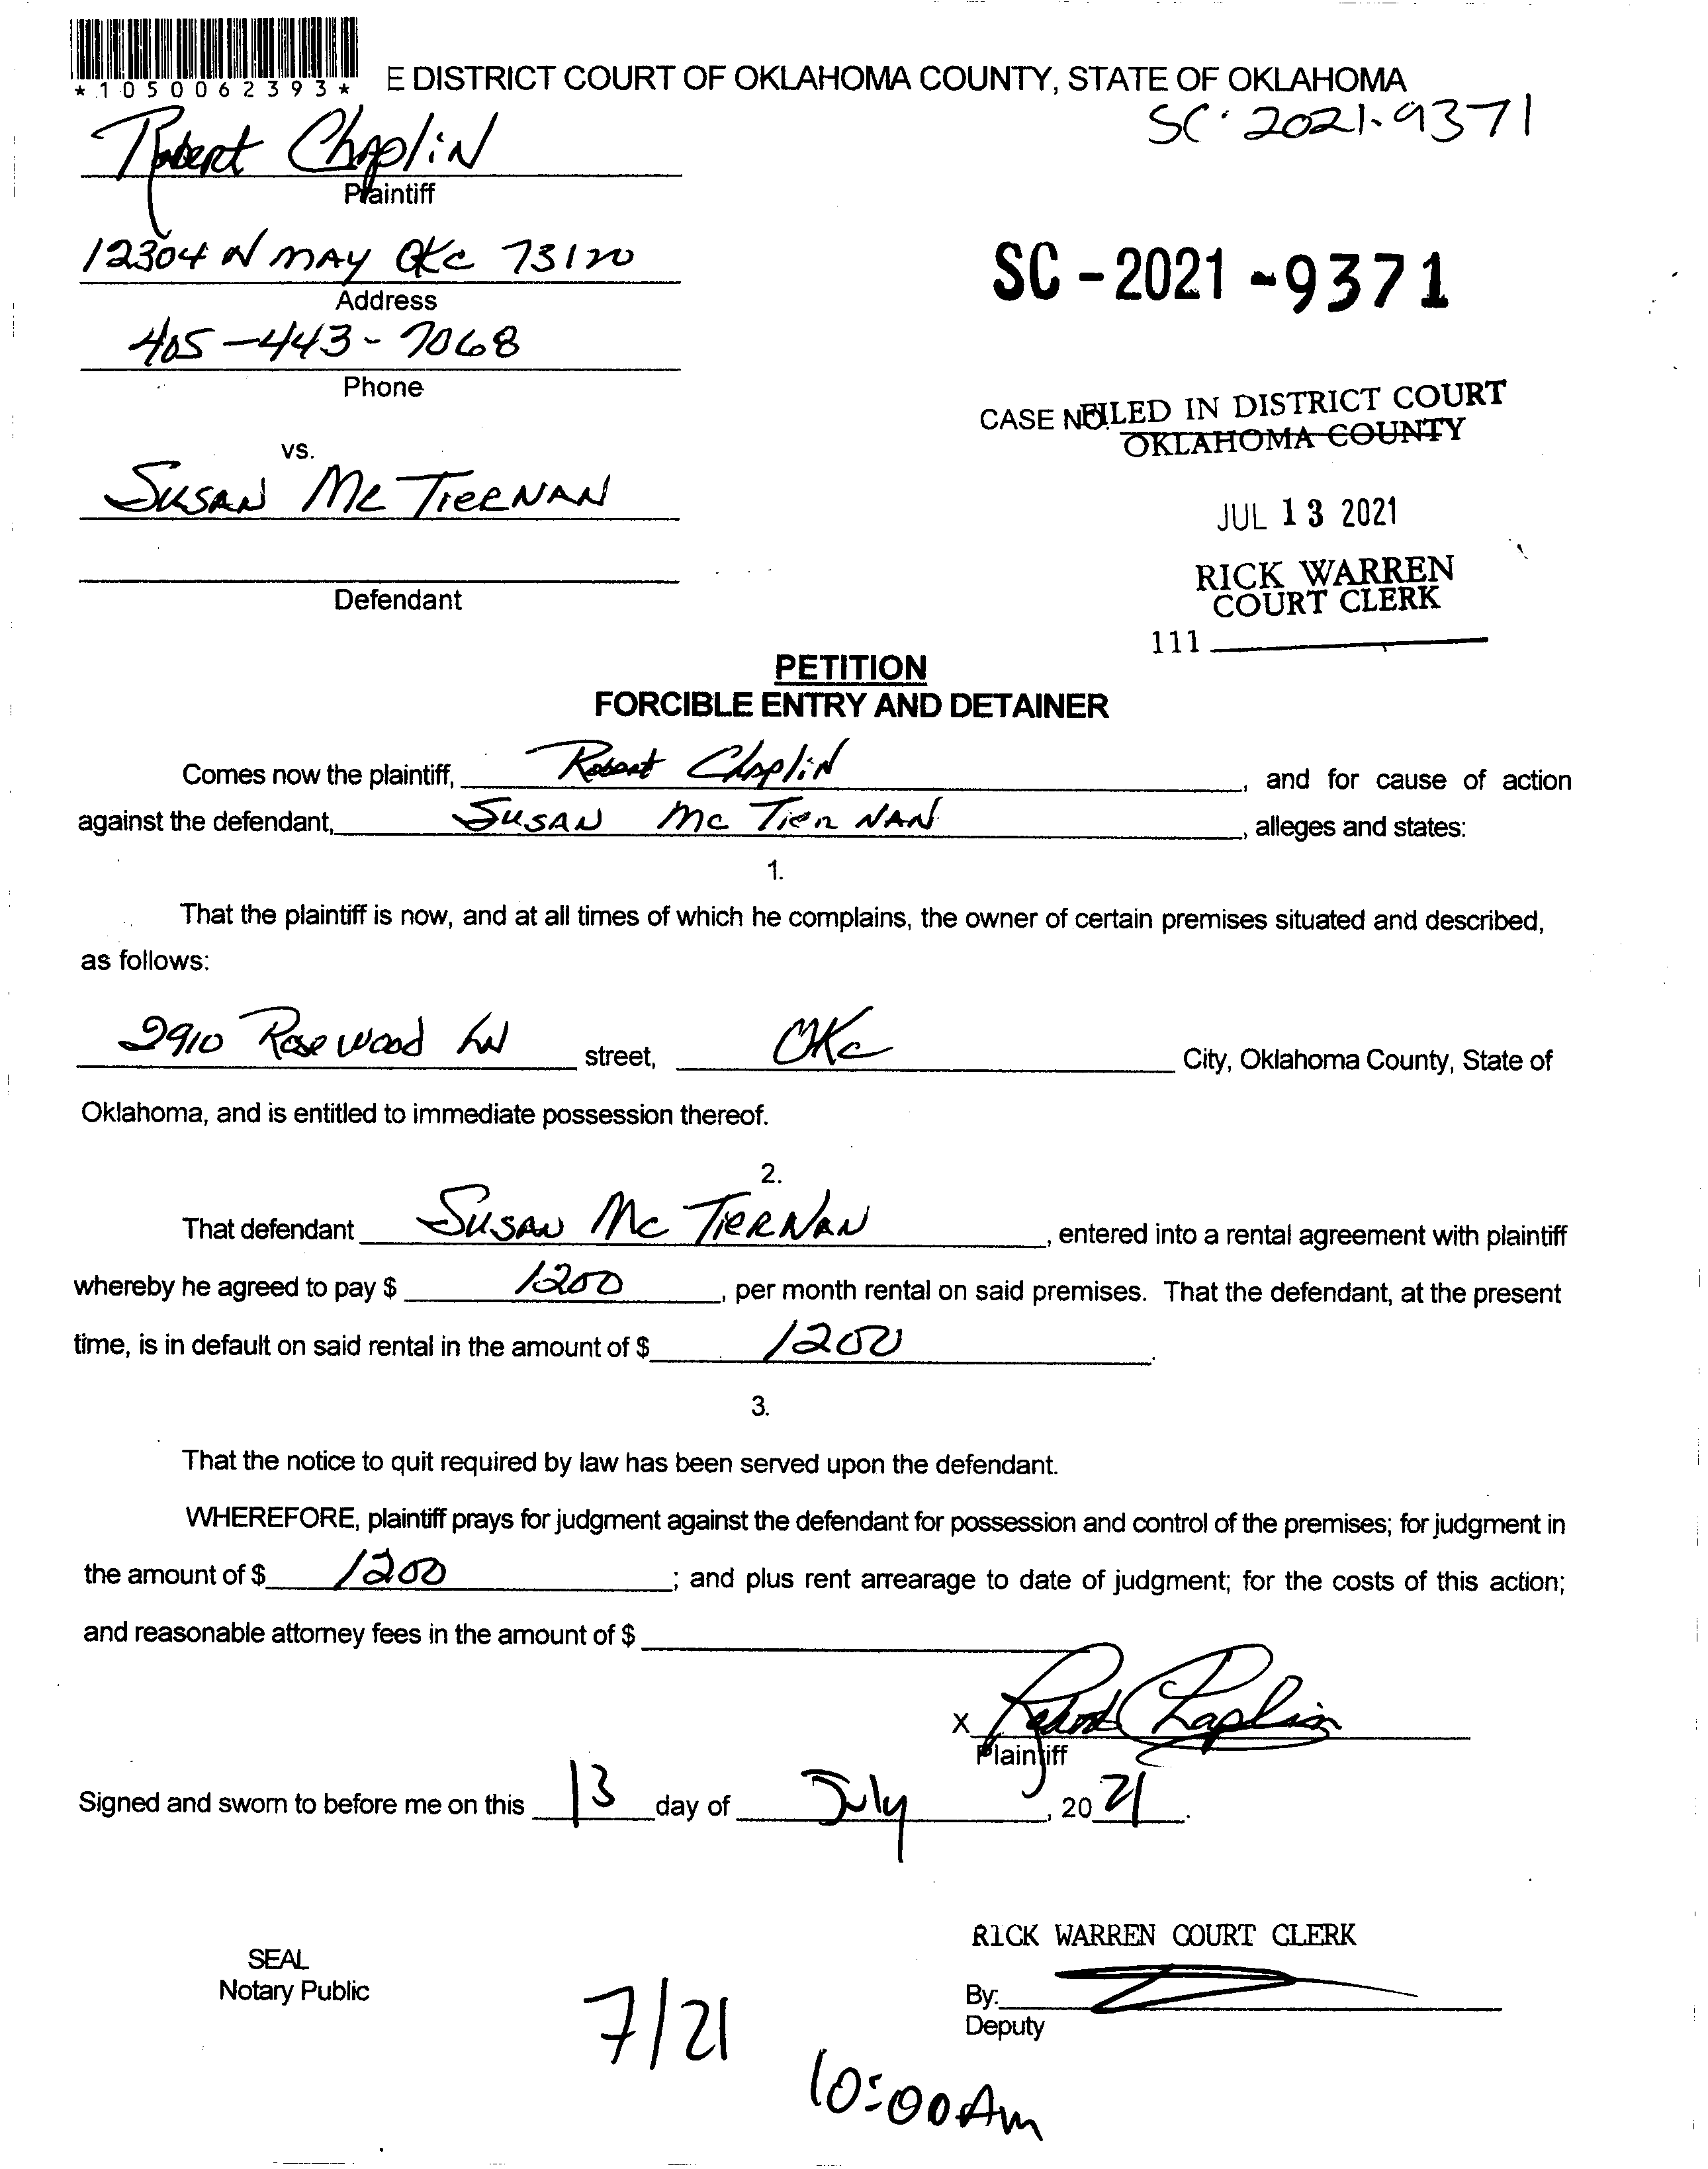 *1050062393*
E DISTRICT COURT OF OKLAHOMA COUNTY, STATE OF OKLAHOMA
SC-2021-9371
Robert Chaplin
Plaintiff
12304 N MAY OKC 73120
Address
SC-2021-9371
405-443-7068
Phone
CASE NO.
FILED IN DISTRICT COURT
OKLAHOMA COUNTY
vs.
SUSAN Mc TIERNAN
JUL 13 2021
Defendant
RICK WARREN
COURT CLERK
111
PETITION
FORCIBLE ENTRY AND DETAINER
Comes now the plaintiff, Robert Chaplin, and for cause of action
against the defendant, SUSAN Mc Tier NAN, alleges and states:
1.
That the plaintiff is now, and at all times of which he complains, the owner of certain premises situated and described,
as follows:
2910 Rosewood LN street, OKC City, Oklahoma County, State of
Oklahoma, and is entitled to immediate possession thereof.
2.
That defendant SUSAN Mc TIERNAN, entered into a rental agreement with plaintiff
whereby he agreed to pay $ 1200, per month rental on said premises. That the defendant, at the present
time, is in default on said rental in the amount of $ 1200.
3.
That the notice to quit required by law has been served upon the defendant.
WHEREFORE, plaintiff prays for judgment against the defendant for possession and control of the premises; for judgment in
the amount of $ 1200; and plus rent arrearage to date of judgment; for the costs of this action;
and reasonable attorney fees in the amount of $
X Robert Chaplin
Plaintiff
Signed and sworn to before me on this 13 day of July, 20 21.
RICK WARREN COURT CLERK
SEAL
Notary Public
By:
Deputy
7/21
10:00 Am